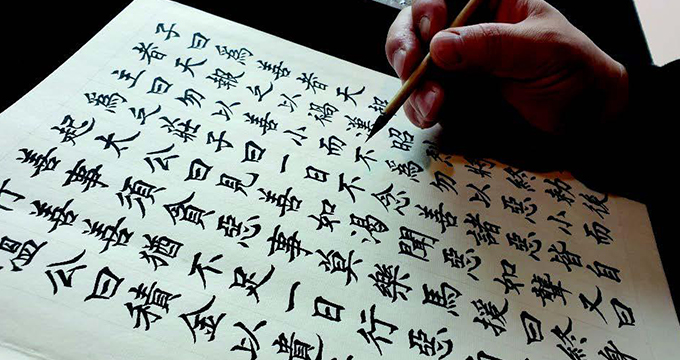 子曰爲善者天報
者天報之以禍漢昭烈將終勅後
主曰勿以善小而不爲勿以惡小而
爲之莊子曰一日不念善諸惡皆自
起大公曰見善如渴聞惡如聾又曰
善事須貪惡事莫樂馬援曰終身
行善善猶不足一日行惡
溫公曰積金以